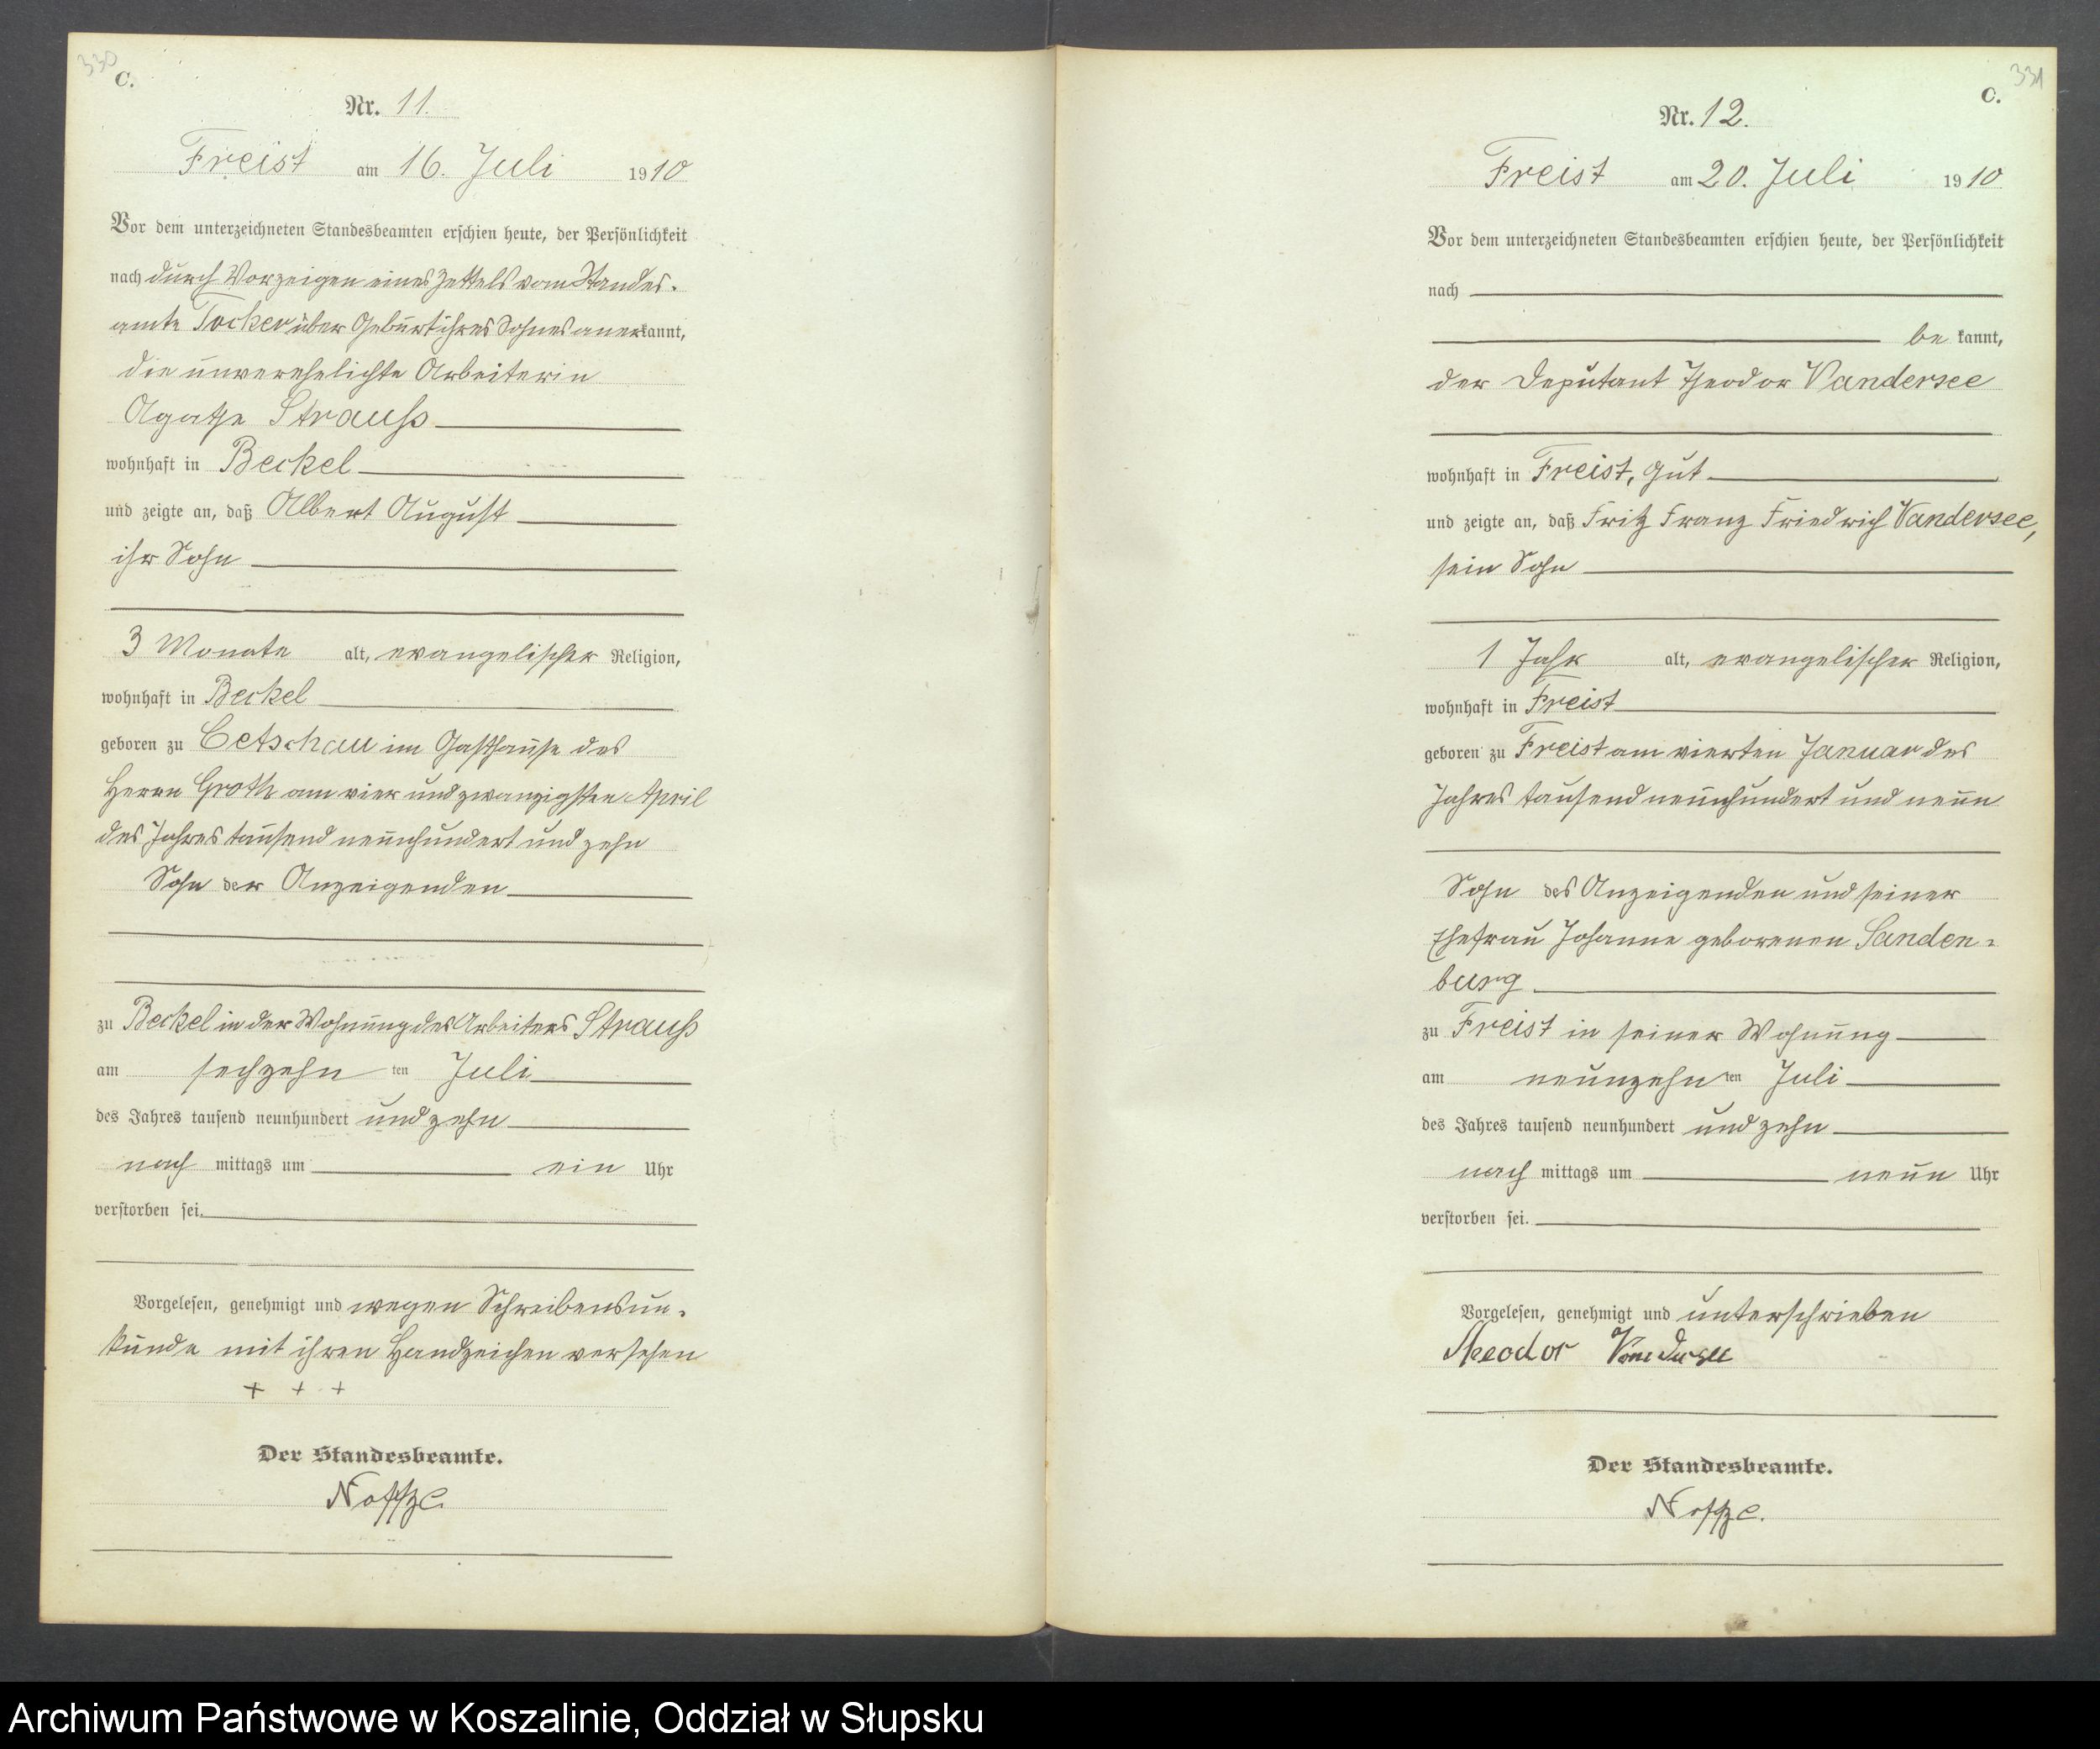 330
C.
Nr. 11.
Freist am 16. Juli 1910
Vor dem unterzeichneten Standesbeamten erschien heute, der Persönlichkeit
nach durch Vorzeigen eines Zettels vom Standes-
amte Tocker über Geburt ihres Sohnes anerkannt,
die unverehelichte Arbeiterin
Agathe Strauß
wohnhaft in Beckel
und zeigte an, daß Albert August
ihr Sohn
3 Monate alt, evangelischer Religion,
wohnhaft in Beckel
geboren zu Cetschau im Gasthause des
Herrn Groth am vier und zwanzigsten April
des Jahres tausend neunhundert und zehn
Sohn der Anzeigenden
zu Beckel in der Wohnung des Arbeiters Strauß
am sechzehn ten Juli
des Jahres tausend neunhundert und zehn
nach mittags um ein Uhr
verstorben sei.
Vorgelesen, genehmigt und wegen Schreibensun-
kunde mit ihren Handzeichen versehen
+ + +
Der Standesbeamte.
331
C.
Nr. 12.
Freist am 20. Juli 1910
Vor dem unterzeichneten Standesbeamten erschien heute, der Persönlichkeit
nach
be kannt,
der Deputant Theodor Vandersee
wohnhaft in Freist, Gut
und zeigte an, daß Fritz Franz Friedrich Vandersee,
sein Sohn
1 Jahr alt, evangelischer Religion,
wohnhaft in Freist
geboren zu Freist am vierten Januar des
Jahres tausend neunhundert und neun
Sohn des Anzeigenden und seiner
Ehefrau Johanne geborenen Sanden-
burg
zu Freist in seiner Wohnung
am neunzehn ten Juli
des Jahres tausend neunhundert und zehn
nach mittags um neun Uhr
verstorben sei.
Vorgelesen, genehmigt und unterschrieben
Theodor Vandersee
Der Standesbeamte.
Archiwum Państwowe w Koszalinie, Oddział w Słupsku